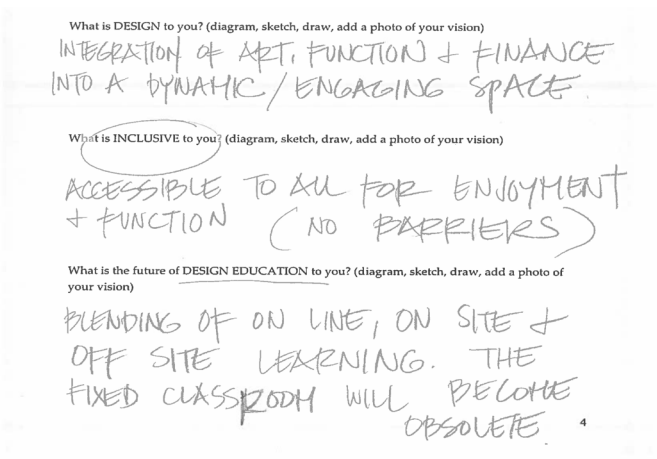 What is DESIGN to you? (diagram, sketch, draw, add a photo of your vision)
INTEGRATION OF ART, FUNCTION + FINANCE
INTO A DYNAMIC / ENGAGING SPACE.
What is INCLUSIVE to you? (diagram, sketch, draw, add a photo of your vision)
ACCESSIBLE TO ALL FOR ENJOYMENT
+ FUNCTION (NO BARRIERS)
What is the future of DESIGN EDUCATION to you? (diagram, sketch, draw, add a photo of
your vision)
BLENDING OF ON LINE, ON SITE +
OFF SITE LEARNING. THE
FIXED CLASSROOM WILL BECOME
OBSOLETE.
4